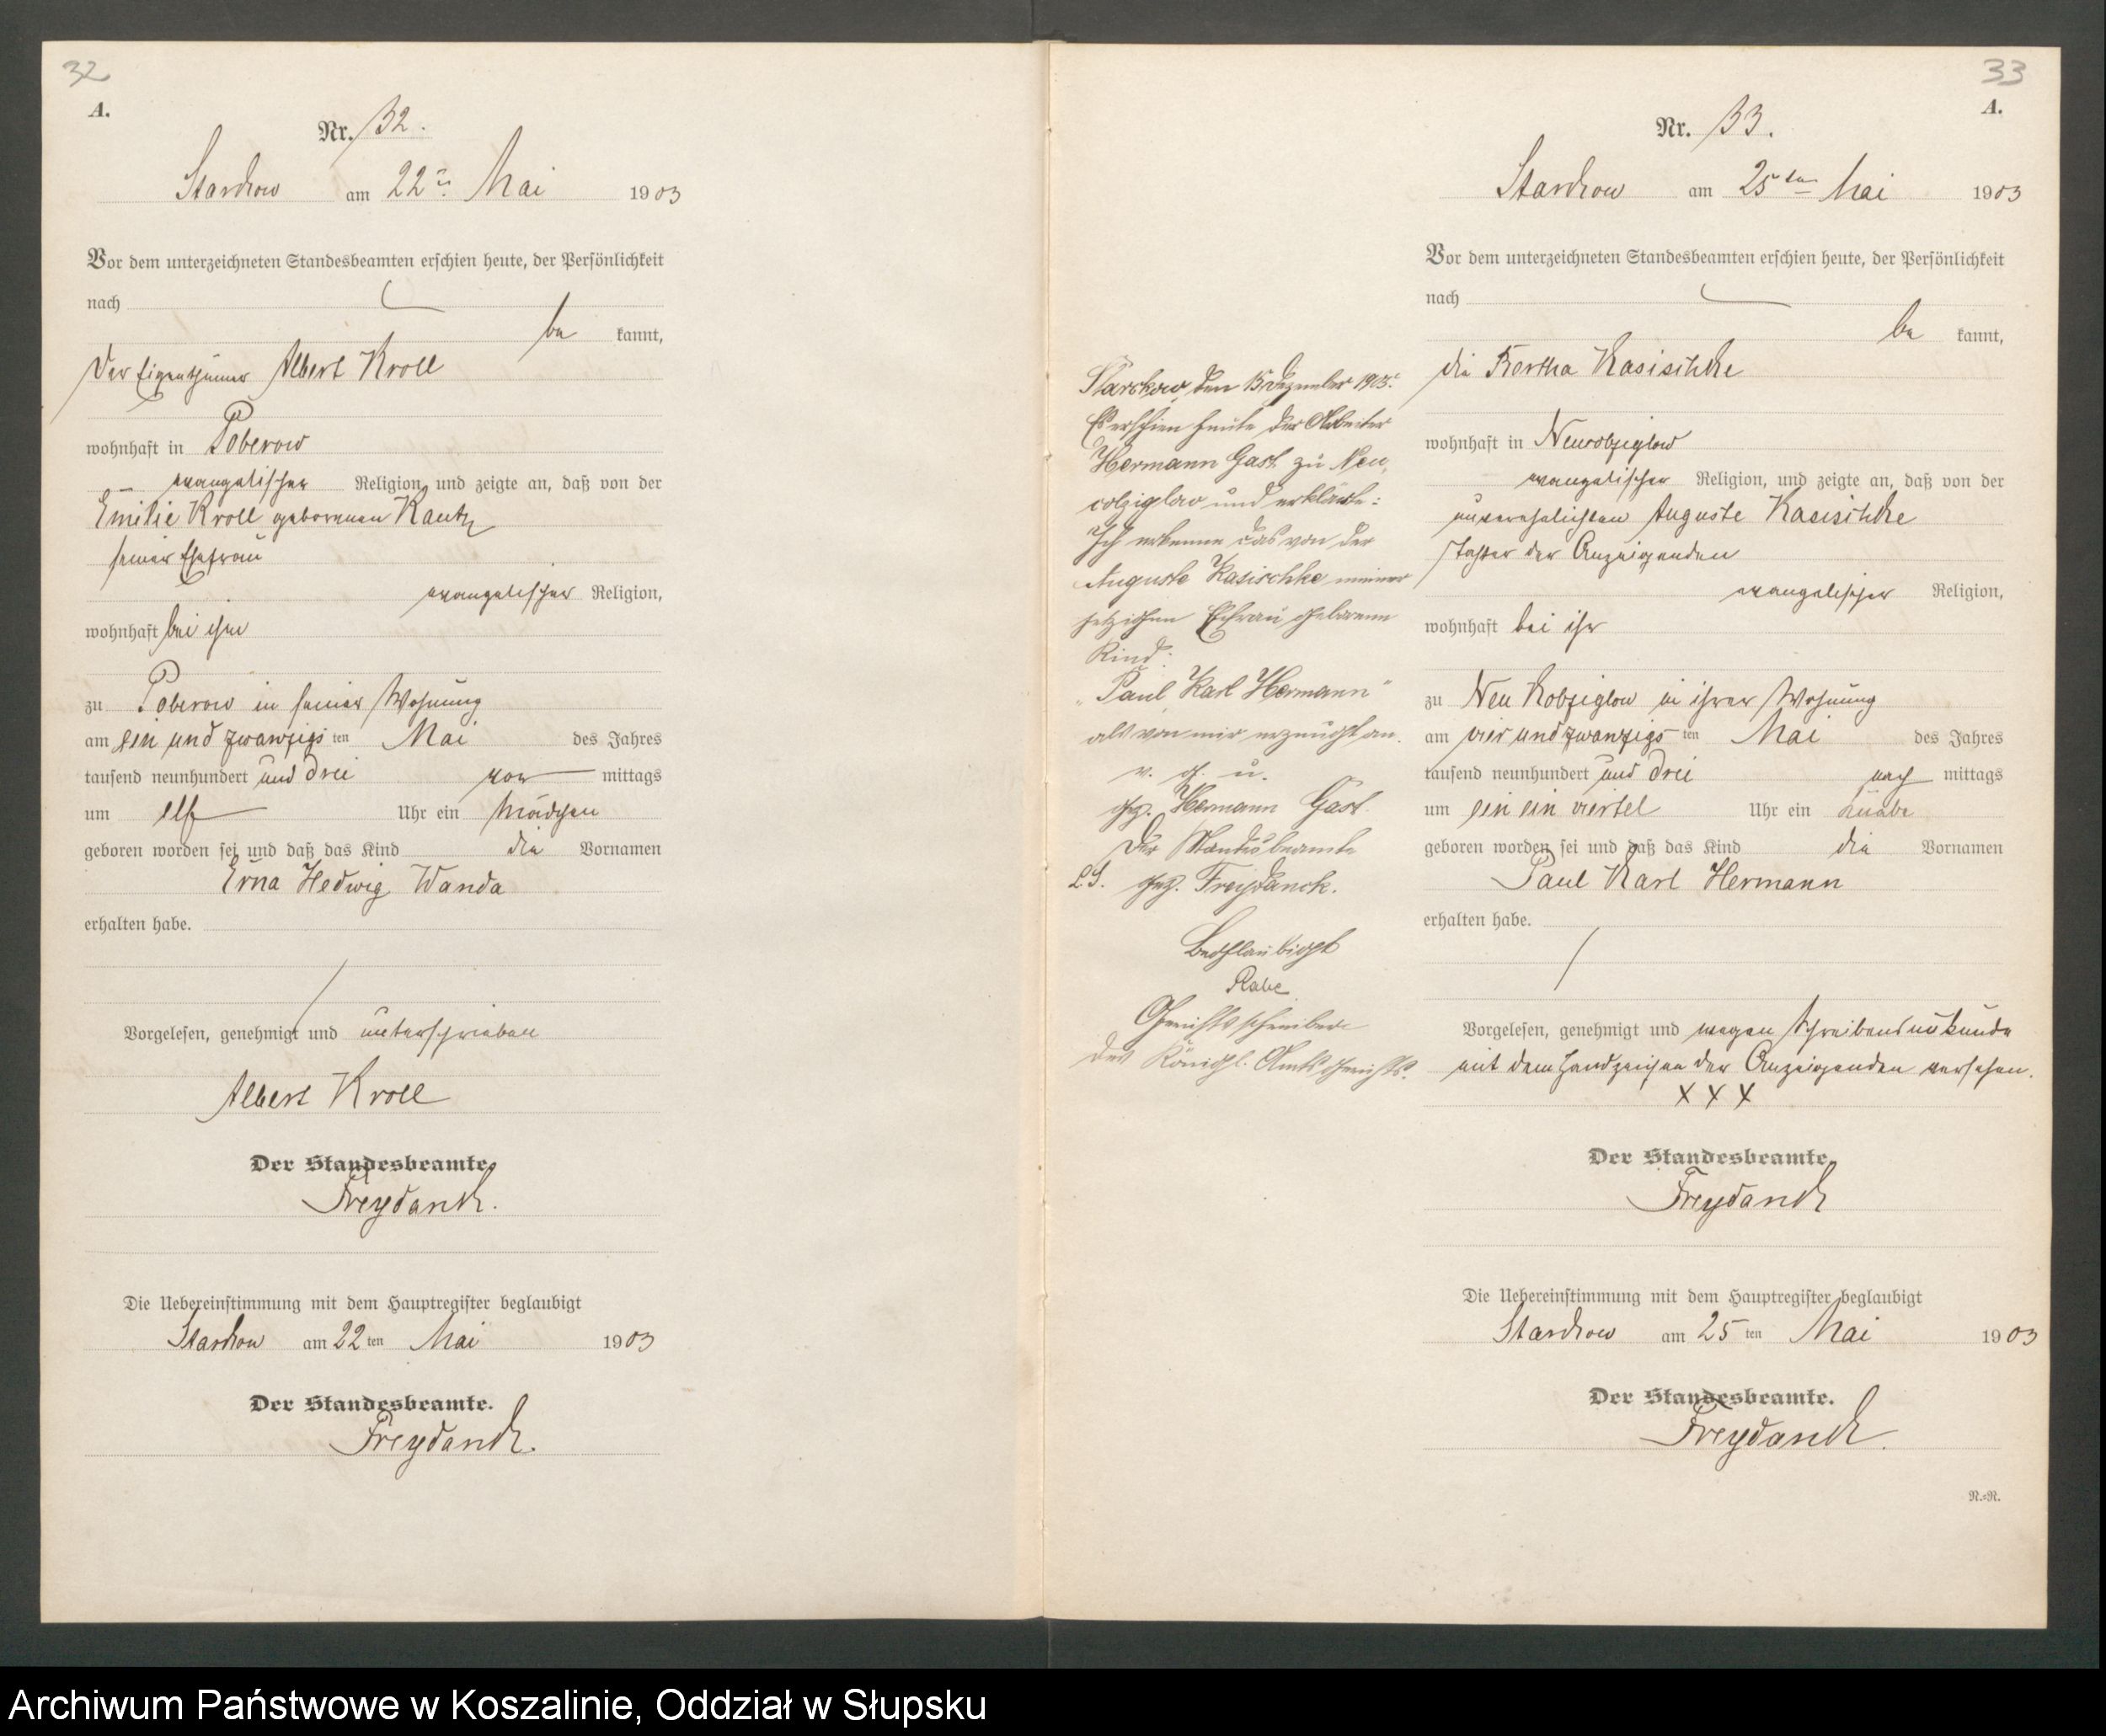 32
A.
Nr. 32.
Starkow am 22ten Mai 1903
Vor dem unterzeichneten Standesbeamten erschien heute, der Persönlichkeit
nach
be kannt,
der Eigenthümer Albert Kroll
wohnhaft in Poberow
evangelischer Religion, und zeigte an, daß von der
Emilie Kroll geborenen Kautz
seiner Ehefrau
evangelischer Religion,
wohnhaft bei ihm
zu Poberow in seiner Wohnung
am ein und zwanzigs ten Mai des Jahres
tausend neunhundert und drei vor mittags
um elf Uhr ein Mädchen
geboren worden sei und daß das Kind die Vornamen
Erna Hedwig Wanda
erhalten habe.
Vorgelesen, genehmigt und unterschrieben
Albert Kroll
Der Standesbeamte.
Freydanck.
Die Uebereinstimmung mit dem Hauptregister beglaubigt
Starkow am 22 ten Mai 1903
Der Standesbeamte.
Freydanck.
33
A.
Nr. 33.
Starkow am 25ten Mai 1903
Vor dem unterzeichneten Standesbeamten erschien heute, der Persönlichkeit
nach
be kannt,
die Bertha Kasischke
wohnhaft in
evangelischer Religion, und zeigte an, daß von der
unverehelichten Auguste Kasischke
Tochter der Anzeigenden
evangelischer Religion,
wohnhaft bei ihr
zu Neu Kolziglow in ihrer Wohnung
am vier und zwanzigs ten Mai des Jahres
tausend neunhundert und drei nach mittags
um ein ein viertel Uhr ein Knabe
geboren worden sei und daß das Kind die Vornamen
Paul Karl Hermann
erhalten habe.
Vorgelesen, genehmigt und wegen Schreibensunkunde
mit dem Handzeichen der Anzeigenden versehen.
X X X
Der Standesbeamte.
Freydanck
Die Uebereinstimmung mit dem Hauptregister beglaubigt
Starkow am 25 ten Mai 1903
Der Standesbeamte.
Freydanck.
N.=N.
Starkow, den 15 Dezember
Es erschien heute der Arbeiter
Hermann Gast zu Neu
colziglow und erklärte:
Ich erkenne das von der
Auguste Kasischke meiner
jetzigen Ehfrau geborene
Kind:
"Paul, Karl Hermann"
als von mir erzeugt an.
v. g. u.
gez. Hermann Gast.
Der Standesbeamte
L.S. gez. Freydanck.
Beglaubigt
Rabe
Gerichtsschreiber
des Königl. Amtsgerichts.
Archiwum Państwowe w Koszalinie, Oddział w Słupsku